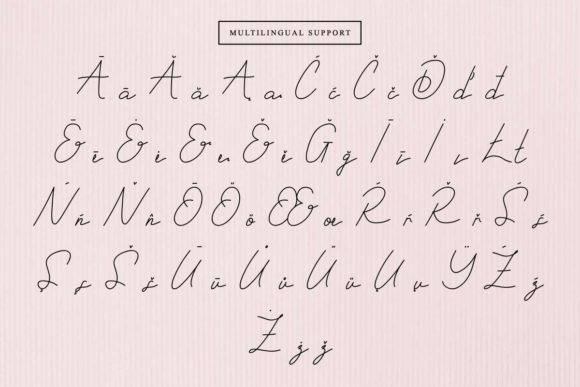 MULTILINGUAL SUPPORT
Ā ā Ă ă Ą ą Ć ć Č č Ď ď đ
Ē ē Ė ė Ę ę Ě ě Ğ ğ Ī ī İ ı Ł ł
Ń ń Ň ň Ō Ő ö Œ œ Ŕ ŕ Ř ř Ś ś
Ş ş Š š Ū ū Ů ů Ű ű Ų ų Ÿ Ź ź
Ż ż ž